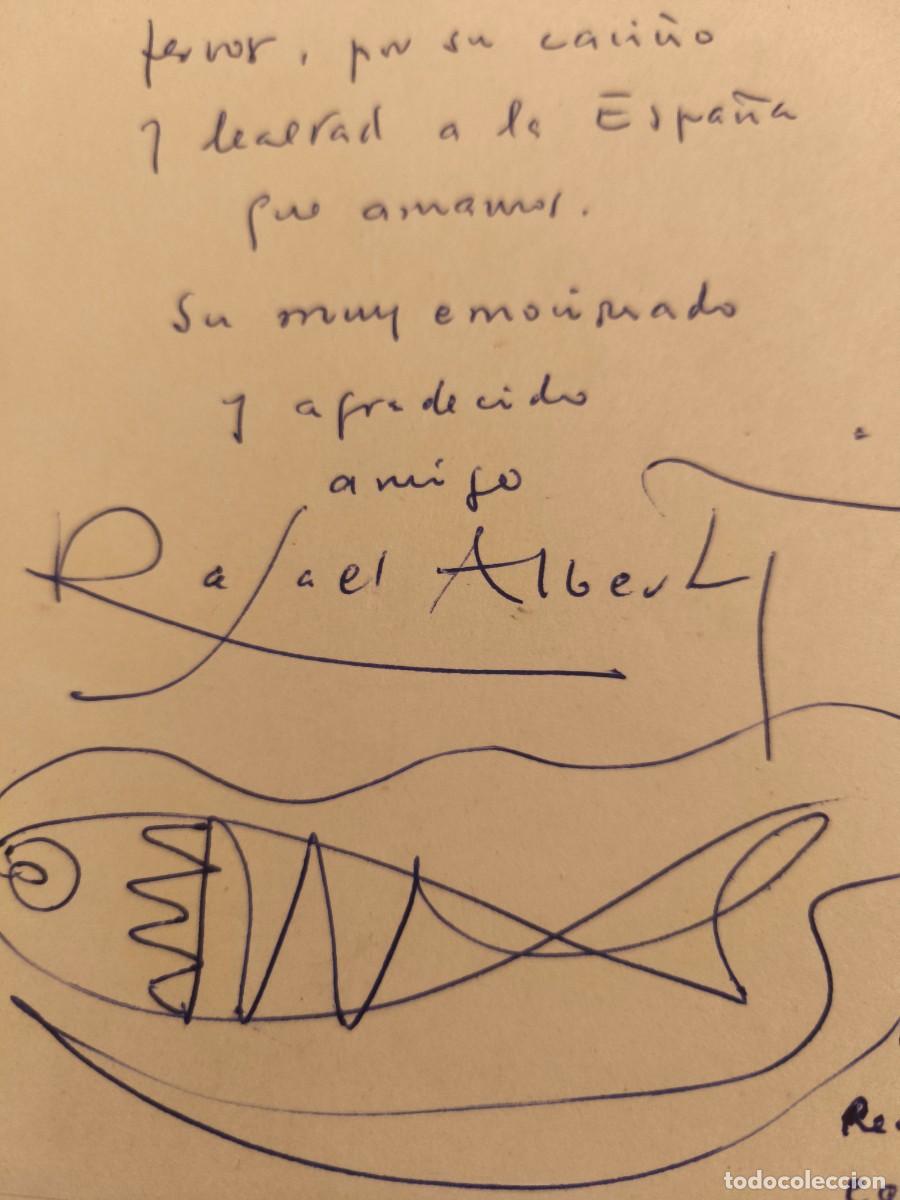 fervor, por su cariño
y lealtad a la España
que amamos.
Su muy emocionado
y agradecido
amigo
Rafael Alberti
todocoleccion